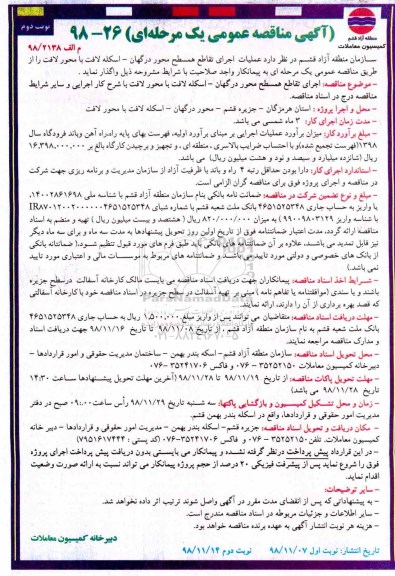 نوبت دوم
(آگهی مناقصه عمومی یک مرحله‌ای) ۲۶- ۹۸
م الف ۹۸/۲۱۳۸
منطقه آزاد قشم
کمیسیون معاملات
سـازمان منطقه آزاد قشـم در نظر دارد عملیات اجرای تقاطع همسطح محور درگهان – اسکله لافت با محور لافت را از
طریق مناقصه عمومی یک مرحله ای به پیمانکار واجد صلاحیت با شرایط مشروحه ذیل واگذار نماید .
- موضوع مناقصه: اجرای تقاطع همسطح محور درگهان – اسکله لافت با محور لافت با شرح کار اجرایی و سایر شرایط
مناقصه درج در اسناد مناقصه.
- محل و اجرا پروژه : استان هرمزگان – جزیره قشم – محور درگهان – اسکله لافت – محور لافت
- مدت زمان اجرای کار: ۳ ماه شمسی می باشد.
- مبلغ برآورد کار: میزان برآورد عملیات اجرایی بر مبنای برآورد اولیه، فهرست بهای پایه راه،راه آهن وباند فرودگاه سال
۱۳۹۸(فهرست تجمیع شده)و با احتساب ضرایب بالاسری ، منطقه ای ، و تجهیز و برچیدن کارگاه بالغ بر ۱۶,۳۹۸,۰۰۰,۰۰۰
ریال (شانزده میلیارد و سیصد و نود و هشت میلیون ریال) می باشد.
- استاندارد اجرای کار: دارا بودن حداقل رتبه ۴ راه و باند با ظرفیت آزاد از سازمان مدیریت و برنامه ریزی جهت شرکت
در مناقصه و اجرای پروژه فوق برای مناقصه گران الزامی است.
- مبلغ و نوع تضمین شرکت در مناقصه: ضمانت نامه بانکی بنام سازمان منطقه آزاد قشم با شناسه ملی ۱۴۰۰۲۸۶۱۶۹۸،
یا واریز به حساب جاری ۴۶۵۱۵۲۵۳۴۸ بانک ملت شعبه قشم با شماره شبای
با شناسه واریز ۹۹۰۰۹۸۰۳۱۲۹ ) به میزان ۸۲۰/۰۰۰/۰۰۰ ریال ( هشتصد و بیست میلیون ریال ) تهیه و منضم به اسناد
مناقصه ارائه گردد، مدت اعتبار ضمانتنامه فوق از تاریخ اولین روز تحویل پیشنهادها به مدت سه ماه و برای سه ماه دیگر
نیز قابل تمدید می باشد، علاوه بر آن ضمانتنامه های بانکی باید طبق فرم های مورد قبول تنظیم شود.( ضمانتنامه بانکی
از بانک های خصوصی و دولتی مورد تایید می باشد و ضمانتنامه های مربوط به موسسات مالی و اعتباری مورد تایید
نمی باشد.)
- شـرایط اخذ اسناد مناقصه: پیمانکاران جهت دریافت اسناد مناقصه می بایست مالک کارخانه آسفالت درسطح جزیره
باشند و یا سندی (موافقتنامه یا تفاهم نامه ) مبنی بر تهیه آسفالت در سطح جزیره در اسناد مناقصه خود با کارخانه آسفالتی
که قصد بهره برداری از آن را دارند، ارائه نمایند.
- مهلت دریافت اسناد مناقصه: متقاضیان می توانند پس از واریز مبلغ ۱,۵۰۰,۰۰۰ ریال به حساب جاری ۴۶۵۱۵۲۵۳۴۸
بانک ملت شعبه قشم به نام سازمان منطقه آزاد قشم ، از تاریخ ۹۸/۱۱/۰۸ تا تاریخ ۹۸/۱۱/۱۶ جهت دریافت اسناد
و مدارک مناقصه مراجعه نمایند.
- محل تحویل اسناد مناقصه: سازمان منطقه آزاد قشم- اسکه بندر بهمن – ساختمان مدیریت حقوقی و امور قراردادها –
دبیرخانه کمیسیون معاملات ۳۵۲۵۲۱۵۰-۰۷۶ و فاکس ۳۵۲۴۱۷۰۶-۰۷۶
- مهلت تحویل پاکات مناقصه: از تاریخ ۹۸/۱۱/۱۹ تا ۹۸/۱۱/۲۸ (آخرین مهلت تحویل پیشنهادها ســاعت ۱۴:۳۰
تاریخ ۹۸/۱۱/۲۸ می باشد)
- زمان و محل تشـکیل کمیسـیون و بازگشایی پاکتها: سه شنبه تاریخ ۹۸/۱۱/۲۹ رأس ساعت ۰۹:۰۰ صبح در دفتر
مدیریت امور حقوقی و قراردادها، واقع در اسکله بندر بهمن قشم.
- مکان دریافت و تحویل اسناد مناقصه: جزیره قشم- اسکله بندر بهمن – مدیریت امور حقوقی و قراردادها – دبیر خانه
کمیسیون معاملات. تلفن ۳۵۲۵۲۱۵۰ - ۰۷۶ و فاکس ۳۵۲۴۱۷۰۶-۰۷۶ (کد پستی : ۷۹۵۱۶۱۷۴۴۴)
- در این قرارداد پیش پرداخت درنظر گرفته نشـده و پیمانکار می بایستی بدون دریافت پیش پرداخت اجرای پروژه
فوق را شروع نماید پس از پیشرفت فیزیکی ۲۰ درصد از حجم پروژه پیمانکار می تواند نسبت به ارائه صورت وضعیت
اقدام نماید.
- سایر توضیحات:
- به پیشنهاداتی که پس از انقضای مدت مقرر در آگهی واصل شوند ترتیب اثر داده نخواهد شد.
- سایر اطلاعات و جزئیات مربوطه در اسناد مناقصه مندرج است.
- هزینه هر نوبت انتشار آگهی به عهده برنده مناقصه خواهد بود.
دبیرخانه کمیسیون معاملات
تاریخ انتشار: نوبت اول ۹۸/۱۱/۰۷ نوبت دوم ۹۸/۱۱/۱۴